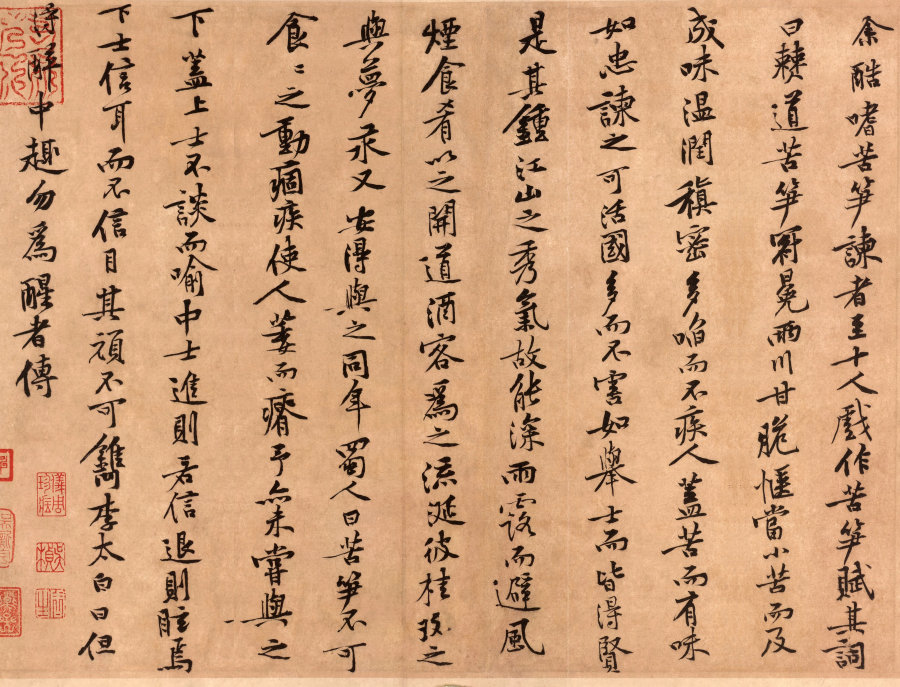 余酷嗜苦笋諫者至十人戲作苦笋賦其詞
曰僰道苦笋冠冕兩川甘脆愜當小苦而及
成味温潤稹密多啗而不疾人蓋苦而有味
如忠諫之可活國多而不害如舉士而皆得賢
是其鍾江山之秀氣故能深雨露而避風
煙食肴以之開道酒客爲之流涎彼桂玫之
與夢永又安得與之同年蜀人曰苦笋不可
食〻之動痼疾使人萎而瘠予亦未嘗與之
下蓋上士不談而喻中士進則若信退則眩焉
下士信耳而不信目其頑不可鐫李太白曰但
得醉中趣勿爲醒者傳
儀周珍藏